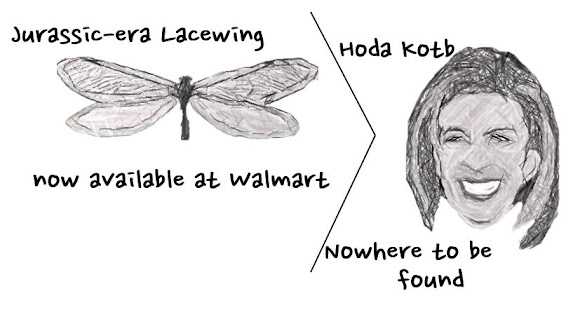 Jurassic-era Lacewing
now available at Walmart
Hoda Kotb
Nowhere to be
found